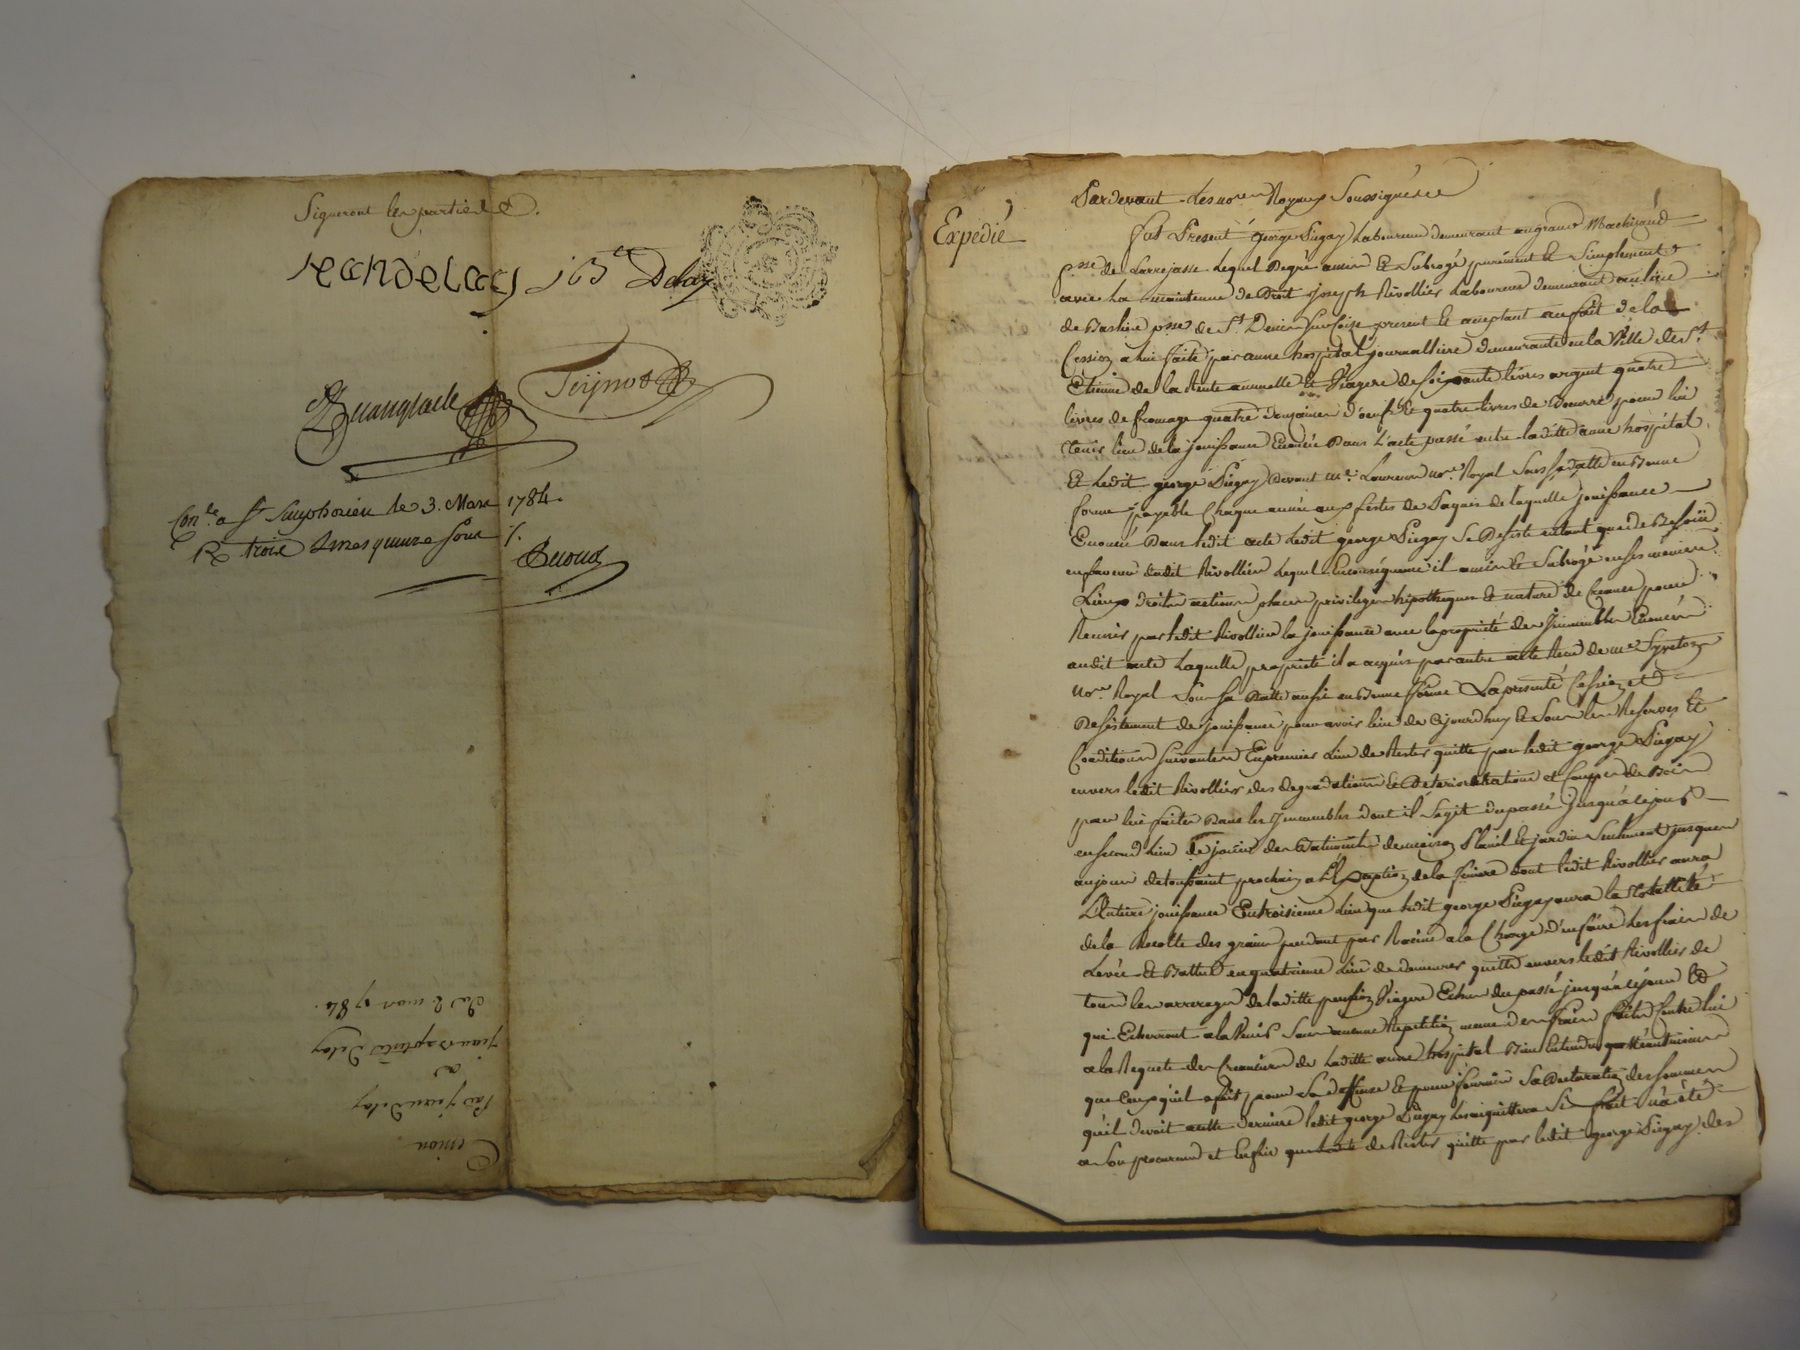 Signeront les parties &.
jeandelay jbte Delay
Guangraele
Teijnot
Con.le a St Simphorien le 3. Mars 1784.
R trois livres quinze sous /.
Cession
Par jean Delay
a
jean Baptiste Delay
du 2 mars 1784.
Expedié
Pardevant Les nores Royaux Soussignés &
fut Present george Piegay Laboureur demeurant au grand
psse de Larrajasse Lequel Degré a mis & Subrogé purement & Simplement
avec La maintenue de Droit joseph Rivollier Laboureur demeurant au lieu
de psse de St Denis Surcoise present & acceptant au fait de la
Cession a lui faite par anne hospital journalliere demeurante en la Ville de St
Etienne de la Rente annuelle & Viagere de soixante livres argent quatre
livres de fromage quatre douzaines d'oeufs & quatre livres de Beurre pour lui
tenir lieu de la jouissance Enoncée Dans L'acte passé entre laditte anne hospital
Et Ledit george Piegay Devant me. Laurenson nore. Royal Sous Sa datte en Bonne
forme payable Chaque année aux festes de Paques de laquelle jouissance
Enoncée Dans ledit acte Ledit george Piegay Se Desiste autant que de Besoin
en faveur dudit Rivollier Lequel En conséquence il a mis & Subrogé en ses mêmes
Lieux droits actions places privileges hipotheques & nature de Creance pour
Reunir par ledit Rivollier la jouissance avec la propriété des Jmmeubles Enoncés
audit acte Laquelle propriété il a acquis par autre acte Recu de me Syreton
nore Royal Sous Sa Datte aussi en Bonne forme La presente Cession et
Desistement de jouissance pour avoir lieu de Cejourdhuy & Sous les Reserves Et
Conditions Suivantes En premier Lieu de Rester quitte par ledit george Piegay
envers ledit Rivollier des degradations & Déteriorations et Couppes de Bois
par lui faites Dans les Jmmeubles dont il S'agit du passé Jusqu'à ce jour
en second Lieu De jouir des Batiments de maison & jardin Seulement jusques
au jour de toussaint prochain a L'Exception de la dont ledit Rivollier aura
L'Entiere jouissance En troisieme Lieu que ledit george Piegay aura la totallité
de la Recolte des grains pendant par Racine a la Charge d'en faire Les frais de
Levée Et Battue en quatrieme Lieu de demeurer quitte envers ledit Rivollier de
tous les arrerages de laditte pension Viagere Echus du passé jusqu'à ce jour &
qui Echerront a la Venir Sans aucune Repetition meme des frais faits Contre lui
a la Requete des Creanciers de Laditte anne hospital Bien Entendu
que Ceux qu'il a fait pour Sa deffense & pour fournir Sa Declaration des Sommes
qu'il devoit a cette derniere ledit george Piegay Si fait n'a été
a Son procureur et Enfin de Rester quitte par ledit george Piegay des